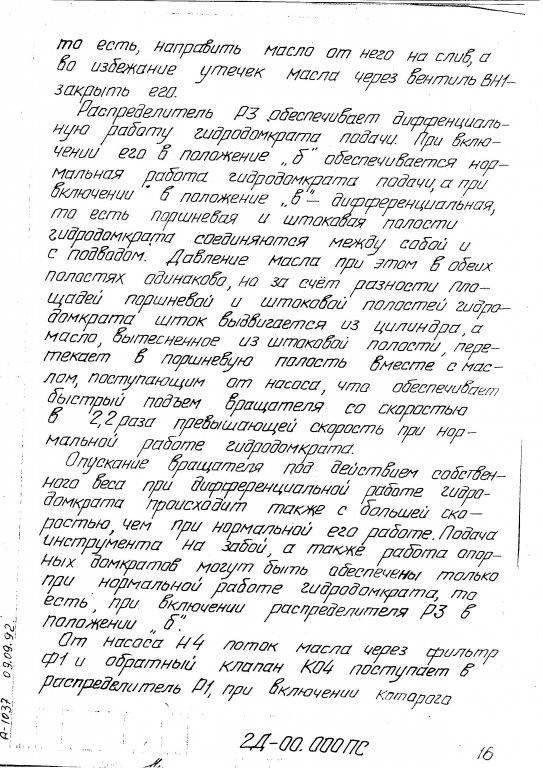 то есть, направить масло от него на слив, а
во избежание утечек масла через вентиль ВН1-
закрыть его.
Распределитель Р3 обеспечивает дифференциаль-
ную работу гидродомкрата подачи. При вклю-
чении его в положение „б" обеспечивается нор-
мальная работа гидродомкрата подачи, а при
включении в положение „в"— дифференциальная,
то есть поршневая и штоковая полости
гидродомкрата соединяются между собой и
с подводом. Давление масла при этом в обеих
полостях одинаково, но за счёт разности пло-
щадей поршневой и штоковой полостей гидро-
домкрата шток выдвигается из цилиндра, а
масло, вытесненное из штоковой полости, пере-
текает в поршневую полость вместе с мас-
лом, поступающим от насоса, что обеспечивает
быстрый подъем вращателя со скоростью
в 2,2 раза превышающей скорость при нор-
мальной работе гидродомкрата.
Опускание вращателя под действием собствен-
ного веса при дифференциальной работе гидро-
домкрата происходит также с большей ско-
ростью, чем при нормальной его работе. Подача
инструмента на забой, а также работа опор-
ных домкратов могут быть обеспечены только
при нормальной работе гидродомкрата, то
есть, при включении распределителя Р3 в
положении „б".
От насоса Н4 поток масла через фильтр
Ф1 и обратный клапан КО4 поступает в
распределитель Р1, при включении которого
А-1037 09.09.92
2Д-00.000ПС
16